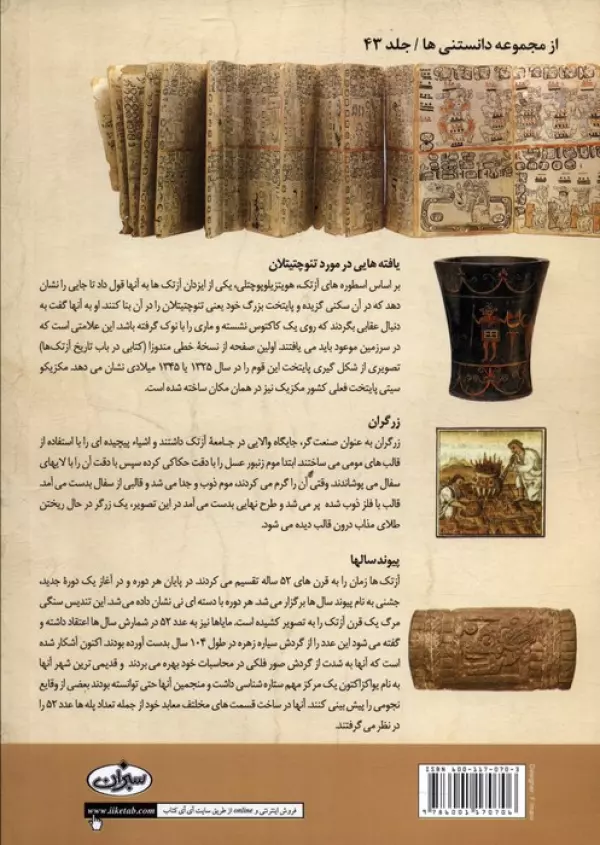 از مجموعه دانستنی ها / جلد ۴۳
یافته هایی در مورد تنوچتیتلان
بر اساس اسطوره های آزتک، هویتزیلوپوچتلی، یکی از ایزدان آزتک ها به آنها قول داد تا جایی را نشان
دهد که در آن سکنی گزیده و پایتخت بزرگ خود یعنی تنوچتیتلان را در آن بنا کنند. او به آنها گفت به
دنبال عقابی بگردند که روی یک کاکتوس نشسته و ماری را با نوک گرفته باشد. این علامتی است که
در سرزمین موعود باید می یافتند. اولین صفحه از نسخهٔ خطی مندوزا (کتابی در باب تاریخ آزتک‌ها)
تصویری از شکل گیری پایتخت این قوم را در سال ۱۳۲۵ یا ۱۳۴۵ میلادی نشان می دهد. مکزیکو
سیتی پایتخت فعلی کشور مکزیک نیز در همان مکان ساخته شده است.
زرگران
زرگران به عنوان صنعت گر، جایگاه والایی در جامعهٔ آزتک داشتند و اشیاء پیچیده ای را با استفاده از
قالب های مومی می ساختند. ابتدا موم زنبور عسل را با دقت حکاکی کرده سپس با دقت آن را با لایهای
سفال می پوشاندند. وقتی آن را گرم می کردند، موم ذوب و جدا می شد و قالبی از سفال بدست می آمد.
قالب با فلز ذوب شده پر می‌شد و طرح نهایی بدست می آمد در این تصویر، یک زرگر در حال ریختن
طلای مذاب درون قالب دیده می شود.
پیوند سالها
آزتک ها زمان را به قرن های ۵۲ ساله تقسیم می کردند. در پایان هر دوره و در آغاز یک دورهٔ جدید،
جشنی به نام پیوند سال ها برگزار می‌شد. هر دوره با دسته ای نی نشان داده می‌شد. این تندیس سنگی
مرگ یک قرن آزتک را به تصویر کشیده است. مایاها نیز به عدد ۵۲ در شمارش سال ها اعتقاد داشته و
گفته می شود این عدد را از گردش سیاره زهره در طول ۱۰۴ سال بدست آورده بودند. اکنون آشکار شده
است که آنها به شدت از گردش صور فلکی در محاسبات خود بهره می بردند و قدیمی ترین شهر آنها
به نام یواکزاکتون یک مرکز مهم ستاره شناسی داشت و منجمین آنها حتی توانسته بودند بعضی از وقایع
نجومی را پیش بینی کنند. آنها در ساخت قسمت های مختلف معابد خود از جمله تعداد پله ها عدد ۵۲ را
در نظر می گرفتند.
سبزان
فروش اینترنتی و online از طریق سایت آی آی کتاب
www.iiketab.com
ISBN 600-117-070-3
9 786001 170706